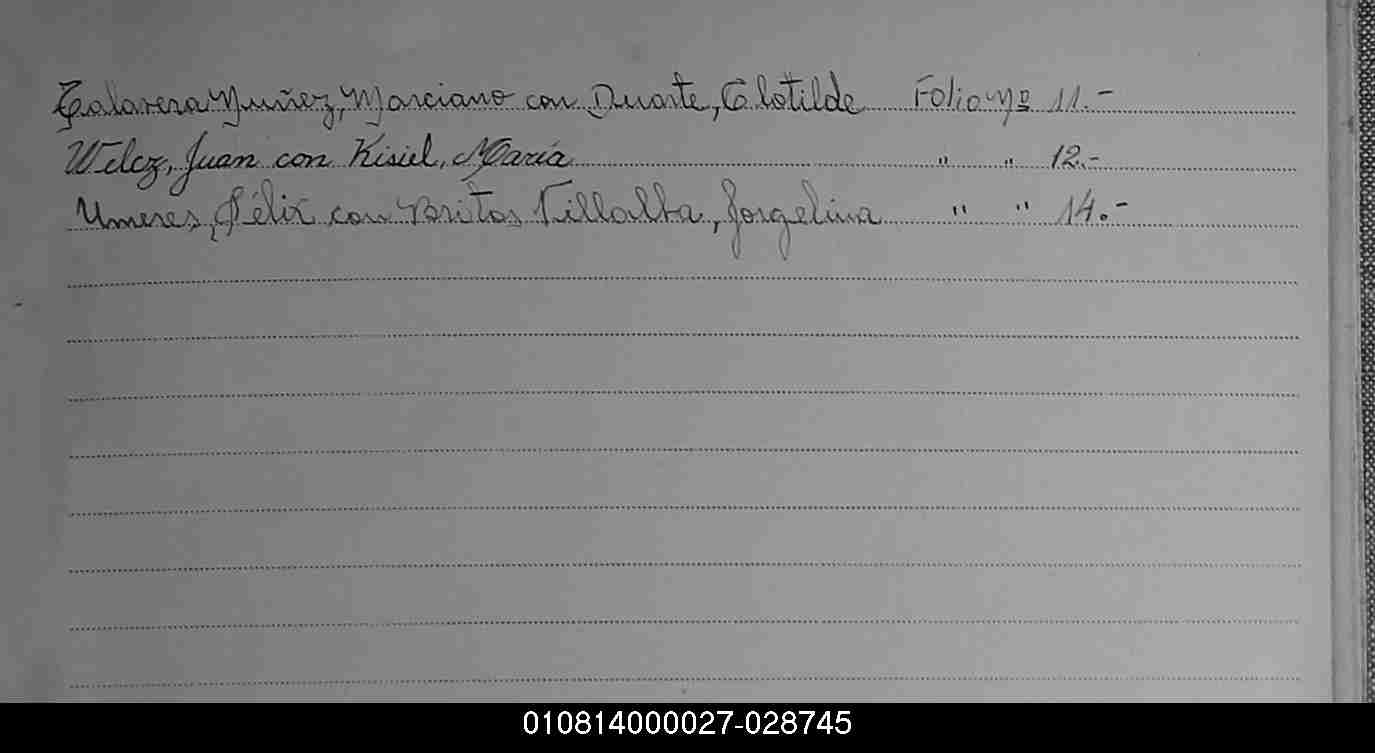 Talavera Nuñez, Marciano con Duarte, Clotilde Folio Nº 11.-
Wilcz, Juan con Kisiel, María " " 12.-
Umeres, Félix con Britos Villalba, Jorgelina " " 14.-
010814000027-028745